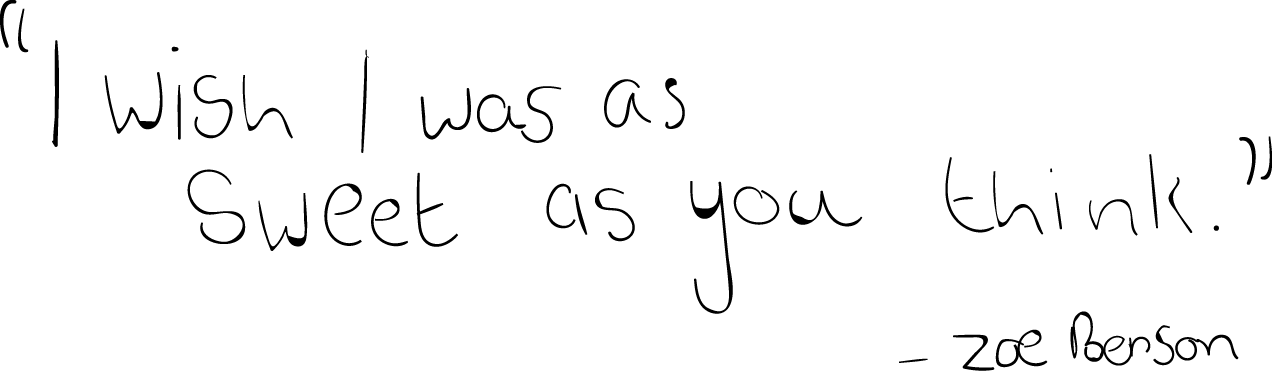 “I wish I was as
Sweet as you think.”
- Zoe Benson